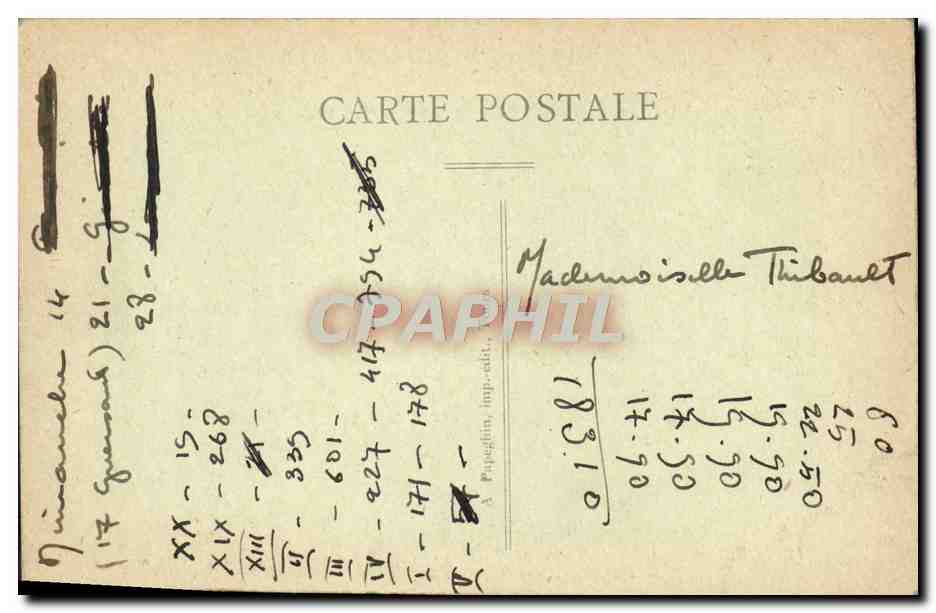 CARTE POSTALE
Mademoiselle Thibault
Dimanche 14
(17 ) 21 -
28 -
XX - 15 -
XIX - 268
XIII - -
II - 335
III - 601 -
IV - 227 - 417 - 794 -
I - 171 - 178
V - -
A Papeghin, imp.-édit.,
CPAPHIL
60
25
22.50
15.90
15.90
17.50
17.90
183.10